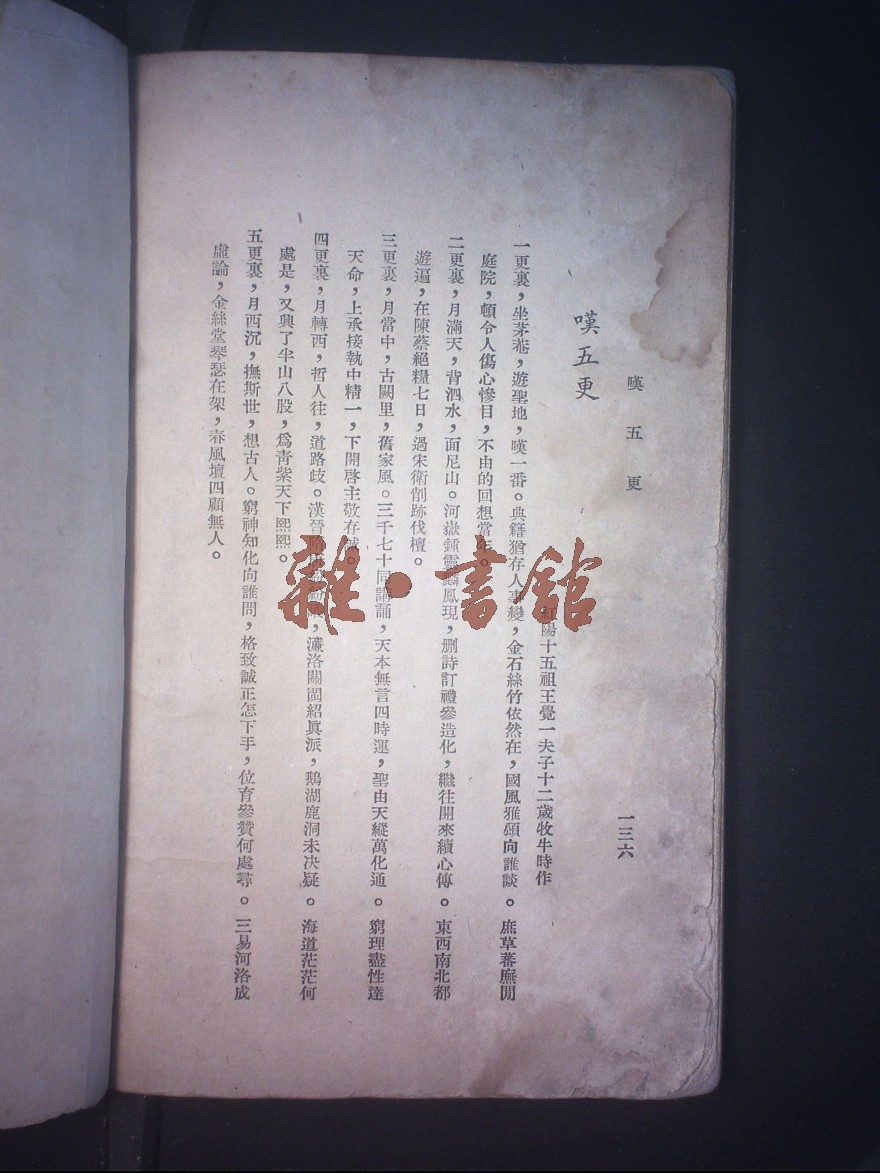 嘆五更
一三六
嘆五更
陽十五祖王覺一夫子十二歲牧牛時作
一更裏，坐茅菴，遊聖地，嘆一番。典籍猶存人事變，金石絲竹依然在，國風雅頌向誰談。庶草蕃廡閒
庭院，頓令人傷心慘目，不由的回想當年。
二更裏，月滿天，背泗水，面尼山。河嶽鍾靈麟鳳現，刪詩訂禮參造化，繼往開來續心傳。東西南北都
遊遍，在陳蔡絕糧七日，過宋衛削跡伐檀。
三更裏，月當中，古闕里，舊家風。三千七十同誦，天本無言四時運，聖由天縱萬化通。窮理盡性達
天命，上承接執中精一，下開啓主敬存誠。
四更裏，月轉西，哲人往，道路歧。漢晉，濂洛關閩紹眞派，鵝湖鹿洞未决疑。海道茫茫何
處是，又興了半山八股，爲青紫天下熙熙。
五更裏，月西沉，撫斯世，想古人。窮神知化向誰問，格致誠正怎下手，位育參贊何處尋。三易河洛成
虛論，金絲堂琴瑟在架，春風壇四顧無人。
雜·書館